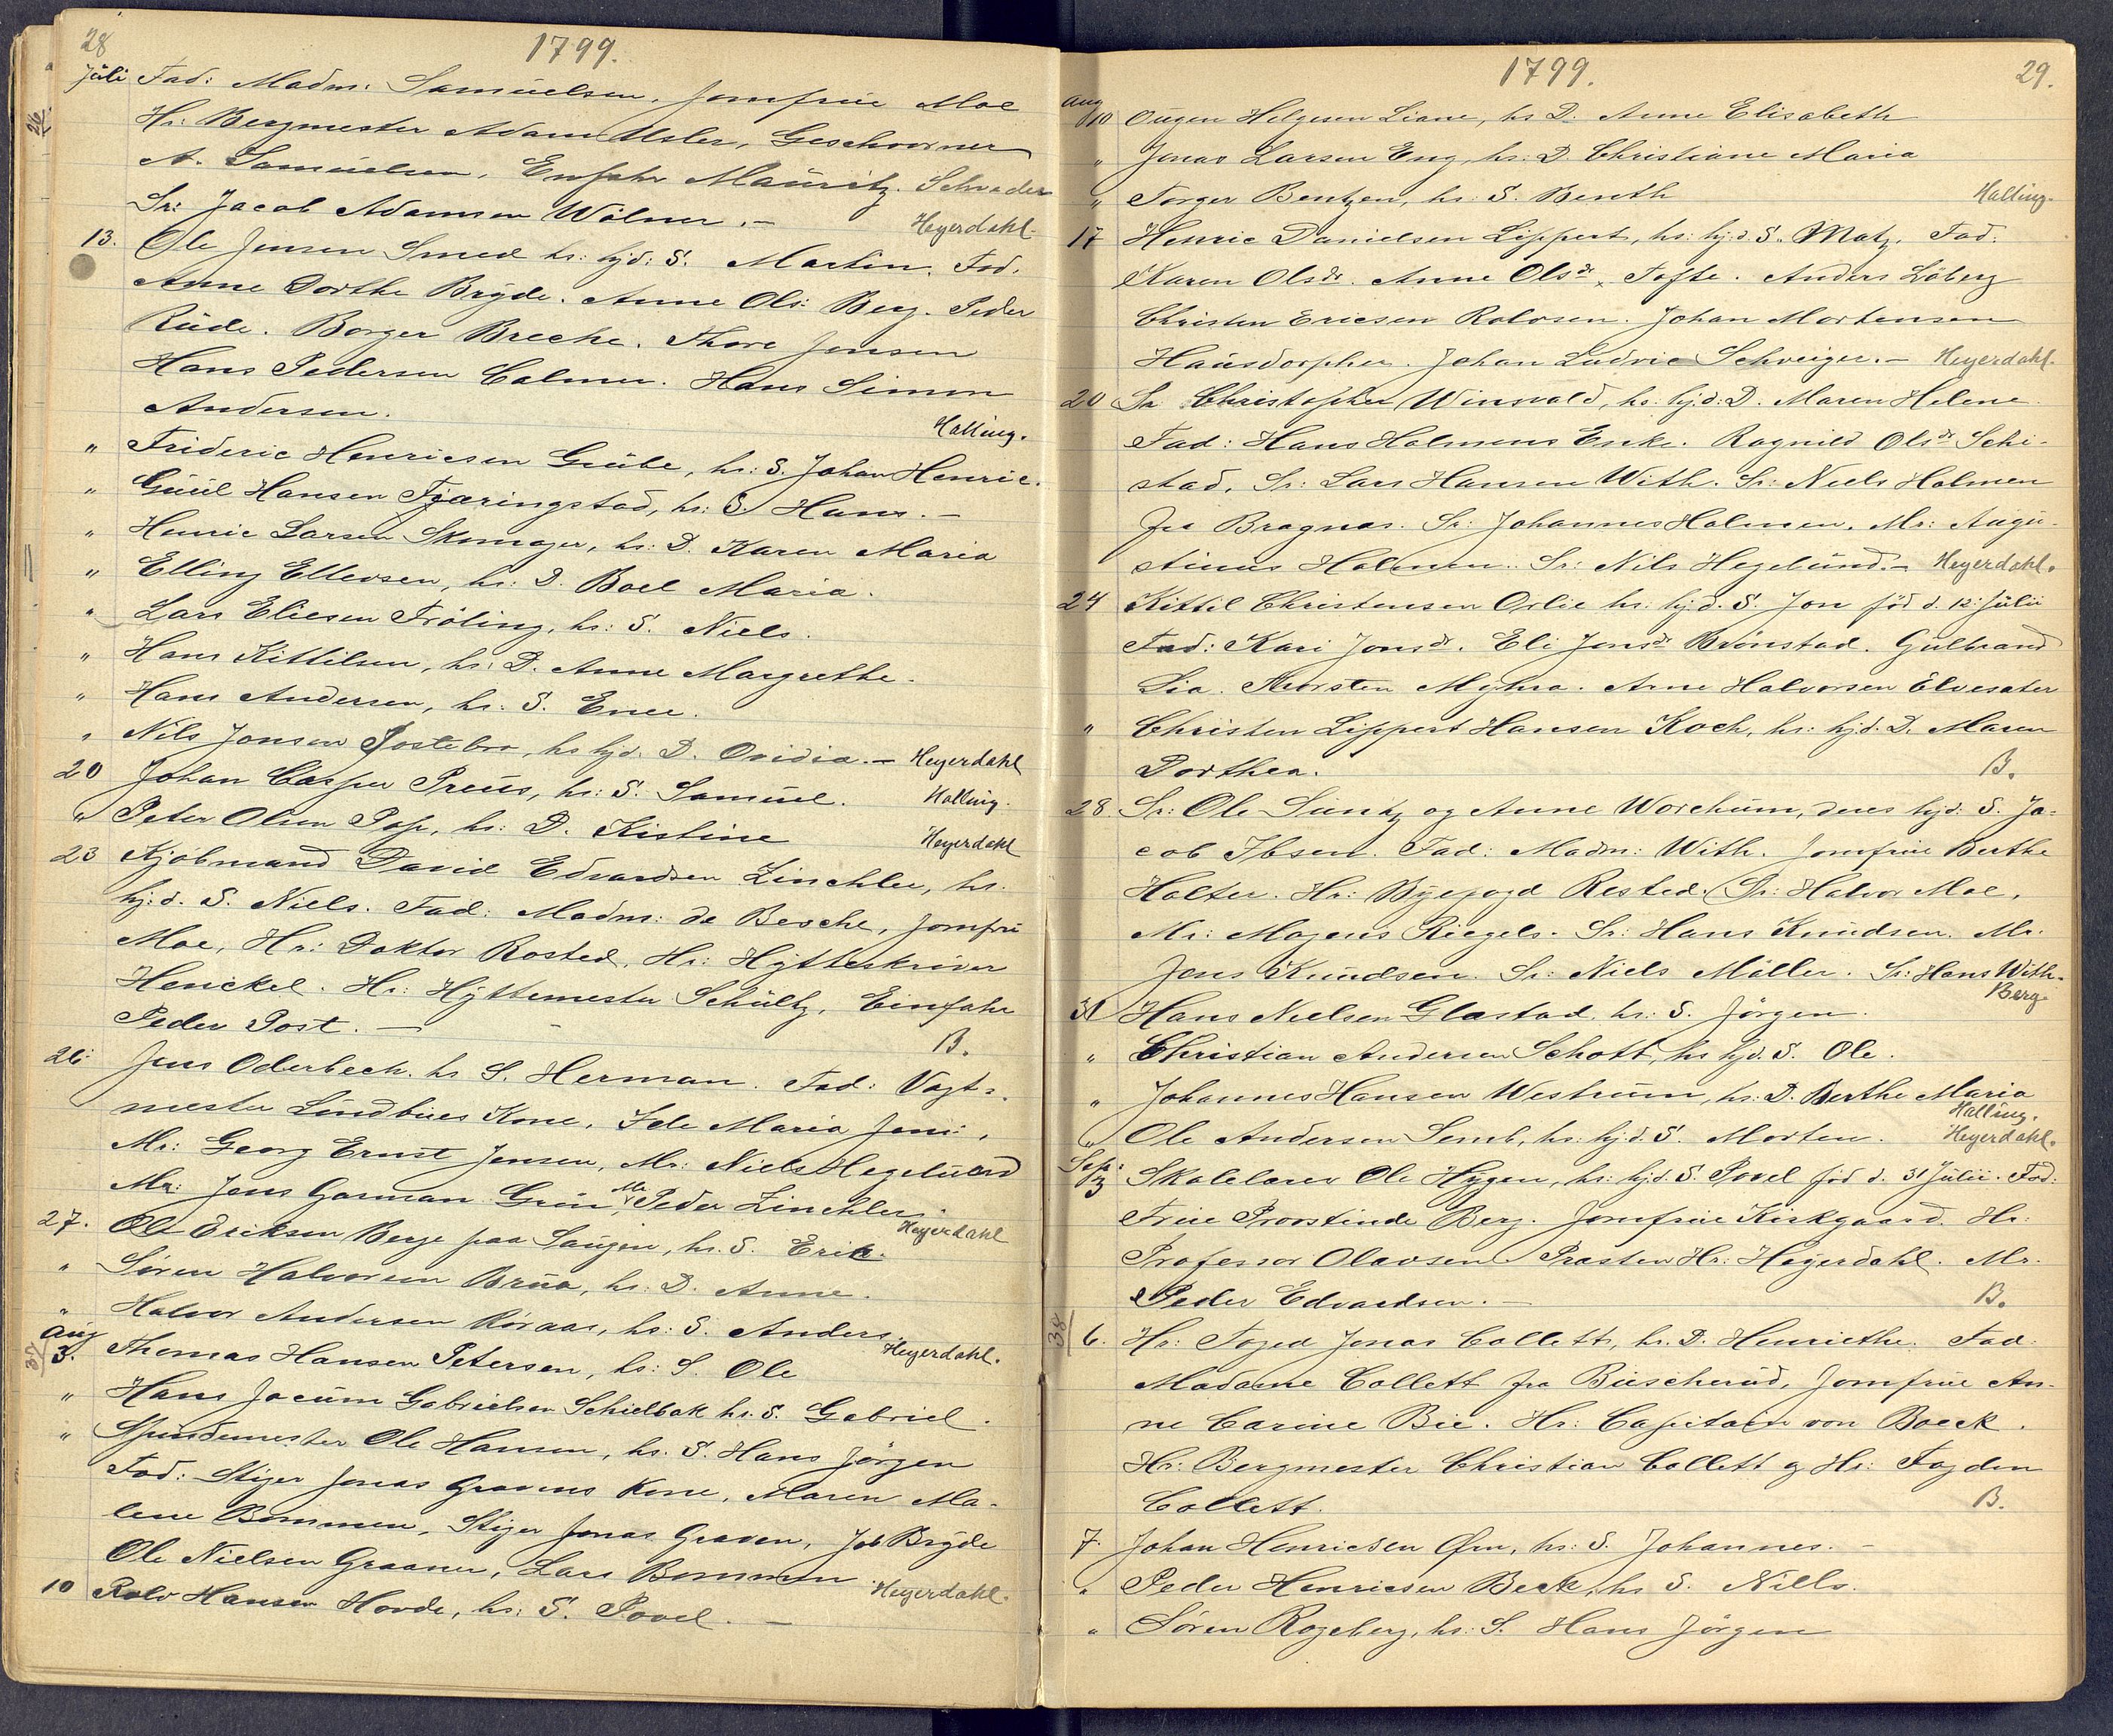 28
1799.
Juli Fad: Madm. Samuelsen, Jomfrue Moe
Hr: Bergmester Adam Usler, Geschworner
A. Samuelsen, Enfahr Mauritz Schrader
Sr: Jacob Adamsen Wölner.— Heyerdahl.
26.
13. Ole Jensen Smed hs: hj.d: S. Martin. Fad.
Anne Dorthe Bryde. Anne Ols: Berg. Peder
Rude. Borger Breche. Thore Jensen
Hans Pedersen Calmer. Hans Simen
Andersen.
Halling.
" Frideric Henricsen Grube, hs: S. Johan Henric.
" Guul Hansen Fjæringstad, hs: S. Hans.—
" Henric Larsen Skomager, hs: D. Karen Maria
" Elling Ellevsen, hs: D. Boel Maria.
" Lars Eliesen Fröling, hs: S. Niels.
" Hans Kittilsen, hs: D. Anne Margrethe.
" Hans Andersen, hs. S. Enee.
" Nils Jonsen Jostebro, hs hj.d. D. Ovidia.— Heyerdahl
20 Johan Casper Preus, hs: S. Samuel. Halling.
" Peter Olsen Pop, hs: D. Kistine Heyerdahl
23 Kjöbmand David Edvardsen Zinchler, hs.
hj.d. S. Niels. Fad: Madm: de Besche, Jomfru
Moe, Hr: Doktor Rosted, Hr: Hytteskriver
Henckel. Hr: Hyttemester Schültz, Einfahr
Peder Post.— B.
26: Jens Oderbech. hs S. Herman. Fad: Vagt-
mester Lindbües Kone, Ide Maria Jens:,
Mr: Georg Ernst Jensen, Mr: Niels Hegelund
Mr: Jens Gasman Grün, Mr Peder Zinchler.
Heyerdahl
27. Ole Eriksen Berge paa Saugen, hs. S. Erik.
" Sören Halvorsen Brua, hs: D. Anne.
" Halvor Andersen Röraas, hs: S. Anders.
Heyerdahl.
Aug
3. Thomas Hansen Petersen, hs: S. Ole
37
" Hans Jocum Gabrielsen Schielbak hs. S. Gabriel.
" Spundemester Ole Hansen, hs. S. Hans Jörgen
Fad: Stiger Jonas Gravens Kone, Maren Ma-
lene Bommen, Stiger Jonas Graven, Job Bryde
Ole Nielsen Graaner, Lars Bommen. Heyerdahl.
10 Rolv Hansen Hovde, hs: S. Povel.—
1799.
29.
Aug
10 Ougen Helgesen Liane, hs D. Anne Elisabeth
" Jonas Larsen Eng, hs: D. Christiane Maria
" Torger Bentzen, hs: S. Benth Halling.
17 Henric Danielsen Lippert, hs: hj.d. S. Matz. Fad:
Karen Olsdr. Anne Olsdr Tofte. Anders Löberg
Christen Ericsen Rolvsen. Johan Mortensen
Hausdorpher. Johan Ludvic Schweiger.— Heyerdahl.
20 Sr. Christopher Winsvald, hs: hj.d: D. Maren Helene
Fad: Hans Holmens Enke. Ragnild Olsdr Schi-
stad, Sr: Lars Hansen With. Sr: Niels Holmen
fra Bragnæs. Sr: Johannes Holmen. Mr: Augu-
stinus Holmen. Sr: Nils Hegelund.— Heyerdahl.
24 Kittil Christensen Orlie hs: hj.d. S. Jon föd d. 12: Julii
Fad: Kari Jonsdr. Eli Jonsdr Brönstad. Gulbrand
Lia. Thorsten Myhra. Arne Halvorsen Elvesæter
" Christen Lippert Hansen Koch, hs: hj.d. D. Maren
Dorthea. B.
28. Sr: Ole Suntz og Anne Worchum, deres hjd: S. Ja-
cob Ibsen. Fad: Madm: With. Jomfrue Berthe
Holter. Hr: Byefogd Rested. Sr: Halvor Moe,
Mr: Mogens Riegels. Sr: Hans Knudsen. Mr.
Jens Knudsen. Sr: Niels Möller. Sr: Hans With.
Berg.
31 Hans Nielsen Glastad, hs: S. Jörgen.
" Christian Andersen Schott, hs hj.d. S. Ole.
" Johannes Hansen Westrum, hs: D. Berthe Maria
Halling.
" Ole Andersen Semb, hs: hj.d. S. Morten. Heyerdahl.
Sep:
3 Skolelærer Ole Hygen, hs: hj.d. S. Povel föd d. 31 Julii. Fad:
Frue Provstinde Berg. Jomfrue Kirkgaard. Hr:
Professor Olavsen Præsten Hr: Heyerdahl. Mr.
Peder Edvardsen.— B.
38
6. Hr: Foged Jonas Collett, hs. D. Henriethe. Fad:
Madame Collett fra Buscherud, Jomfrue An-
ne Carine Bie. Hr: Capitain von Boeck.
Hr: Bergmester Christian Collett og Hr: Fogden
Collett. B.
7. Johan Henricsen Örn, hs: S. Johannes.—
" Peder Henricsen Beck, hs S. Niels.
" Sören Rogeberg, hs: S. Hans Jörgen